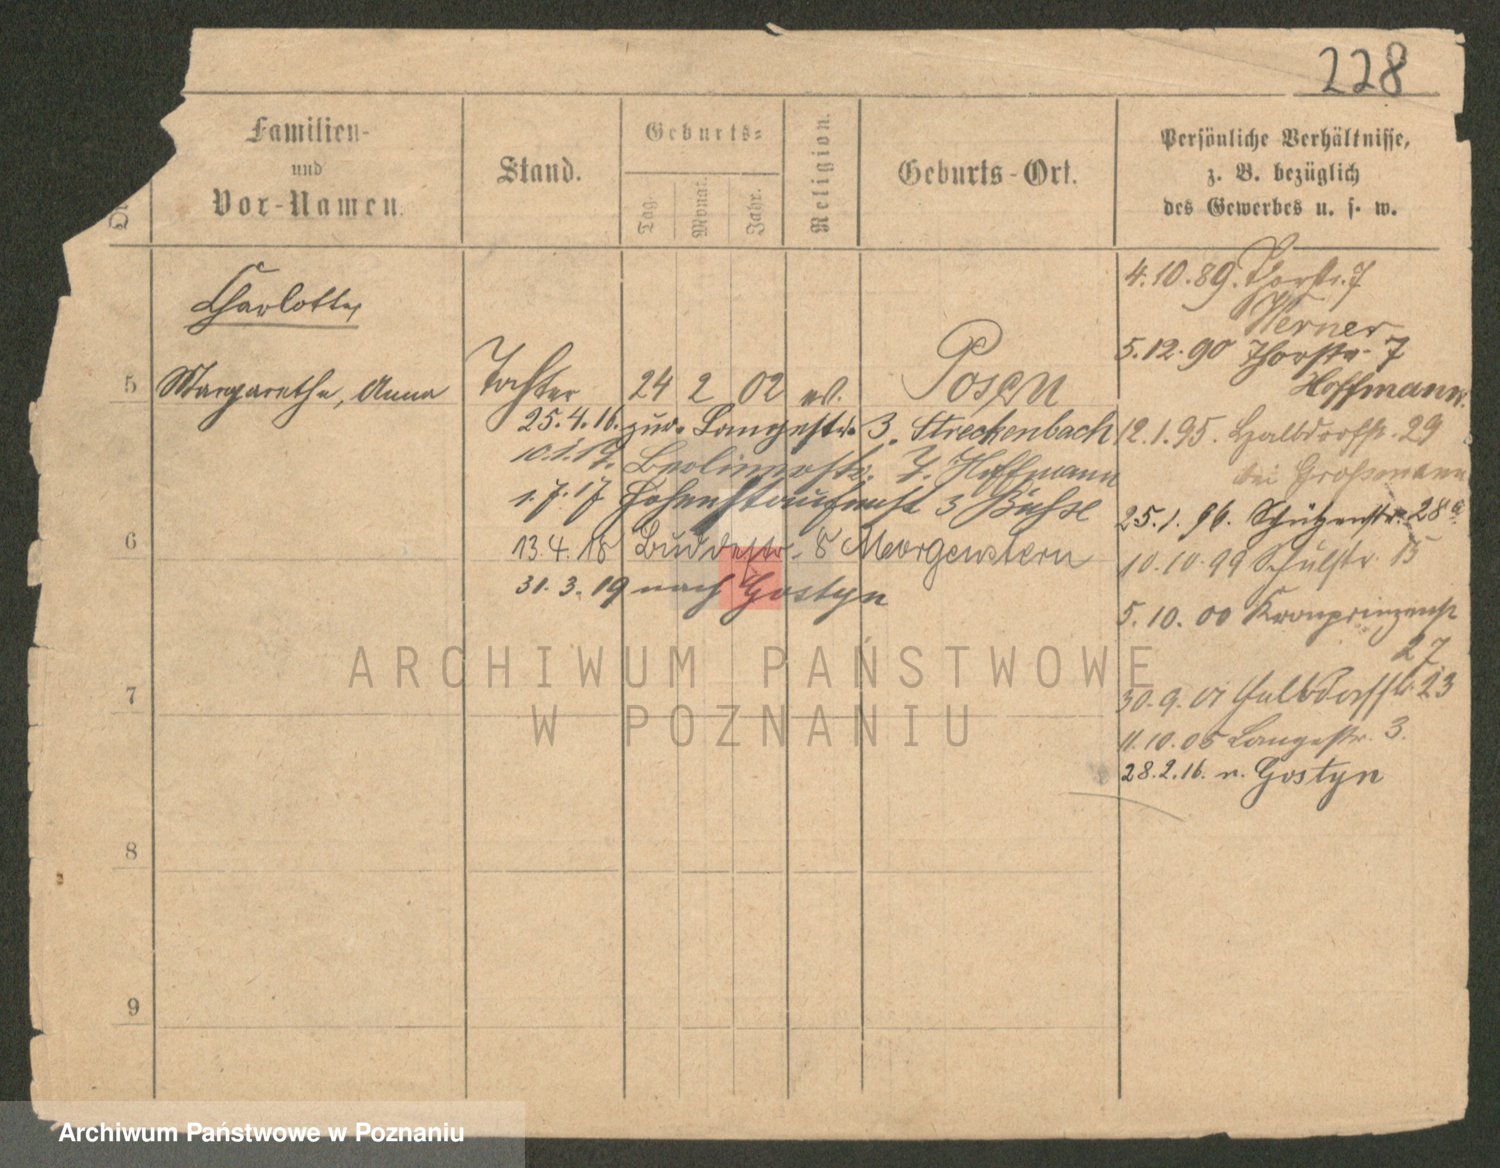 228
Familien-
und
Vor-Namen.
Stand.
Geburts-
Tag.
Monat.
Jahr.
Religion.
Geburts-Ort.
Persönliche Verhältnisse,
z. B. bezüglich
des Gewerbes u. s. w.
Charlotte
5 Margarethe, Anna Tochter 24 2 02 ev. Posen
25.4.16. zur. Langestr. 3. Streckenbach
10.1.17. Berlinerstr. Hoffmann
1.7.17 Hohenstaufenstr 3
13.4.18 Buddestr. 8 Morgenstern
31.3.19 nach Gostyn
6
7
8
9
4.10.89. Thorstr. 7
Werner
5.12.90 Thorstr. 7
Hoffmann.
12.1.95. Halbdorfstr. 29
bei Grossmann
25.1.96. Schützenstr. 28a
10.10.99 Schulstr. 15
5.10.00 Kronprinzenstr
27
30.9.01 Halbdorfstr. 23
11.10.05 Langestr. 3.
28.2.16. n. Gostyn
ARCHIWUM PAŃSTWOWE
W POZNANIU
Archiwum Państwowe w Poznaniu